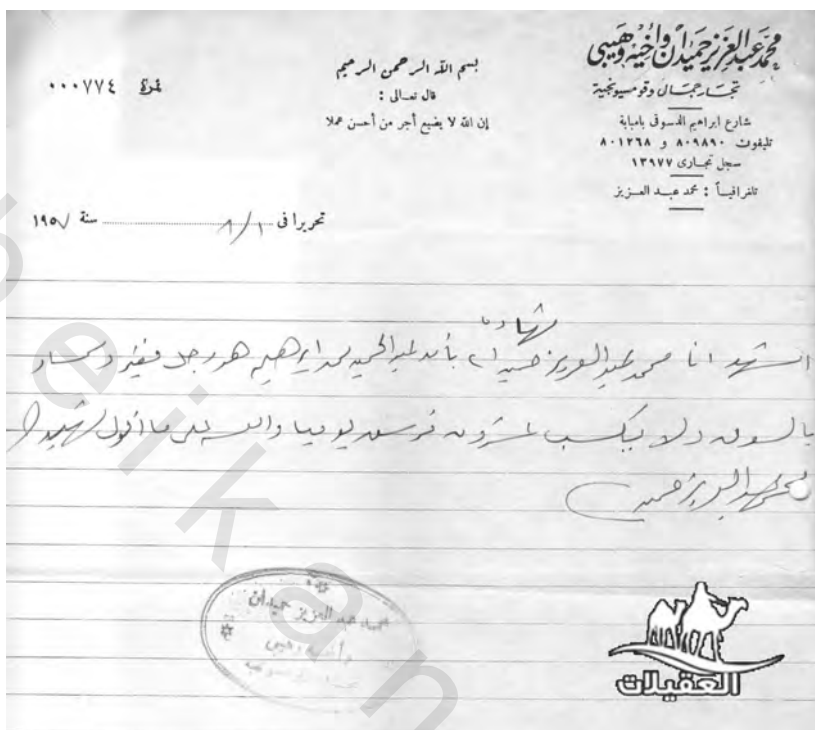 محمد عبد العزيز حميدان وأخيه وهيبي
تجار جمال وقومسيونجية
شارع ابراهيم الدسوقى بامبابة
تليفون ٨٠٩٨٩٠ و ٨٠١٢٦٨
سجل تجارى ١٣٩٧٧
تلغرافياً : محمد عبد العزيز
بسم الله الرحمن الرحيم
قال تعالى :
إن الله لا يضيع أجر من أحسن عملا
نمرة ٠٠٠٧٧٤
تحريرا فى ٨/١ سنة ١٩٥٧
شهادة
اشهد انا محمد عبد العزيز حميدان بأن عبد الحميد محمد ابراهيم هو رجل فقير وسمسار
بالسوق ولا يكسب عشرون قرش يوميا والله على ما أقول شهيد
محمد عبد العزيز حميدان
محمد عبد العزيز حميدان
وأخيه وهيبي
العقيلات
obeikan